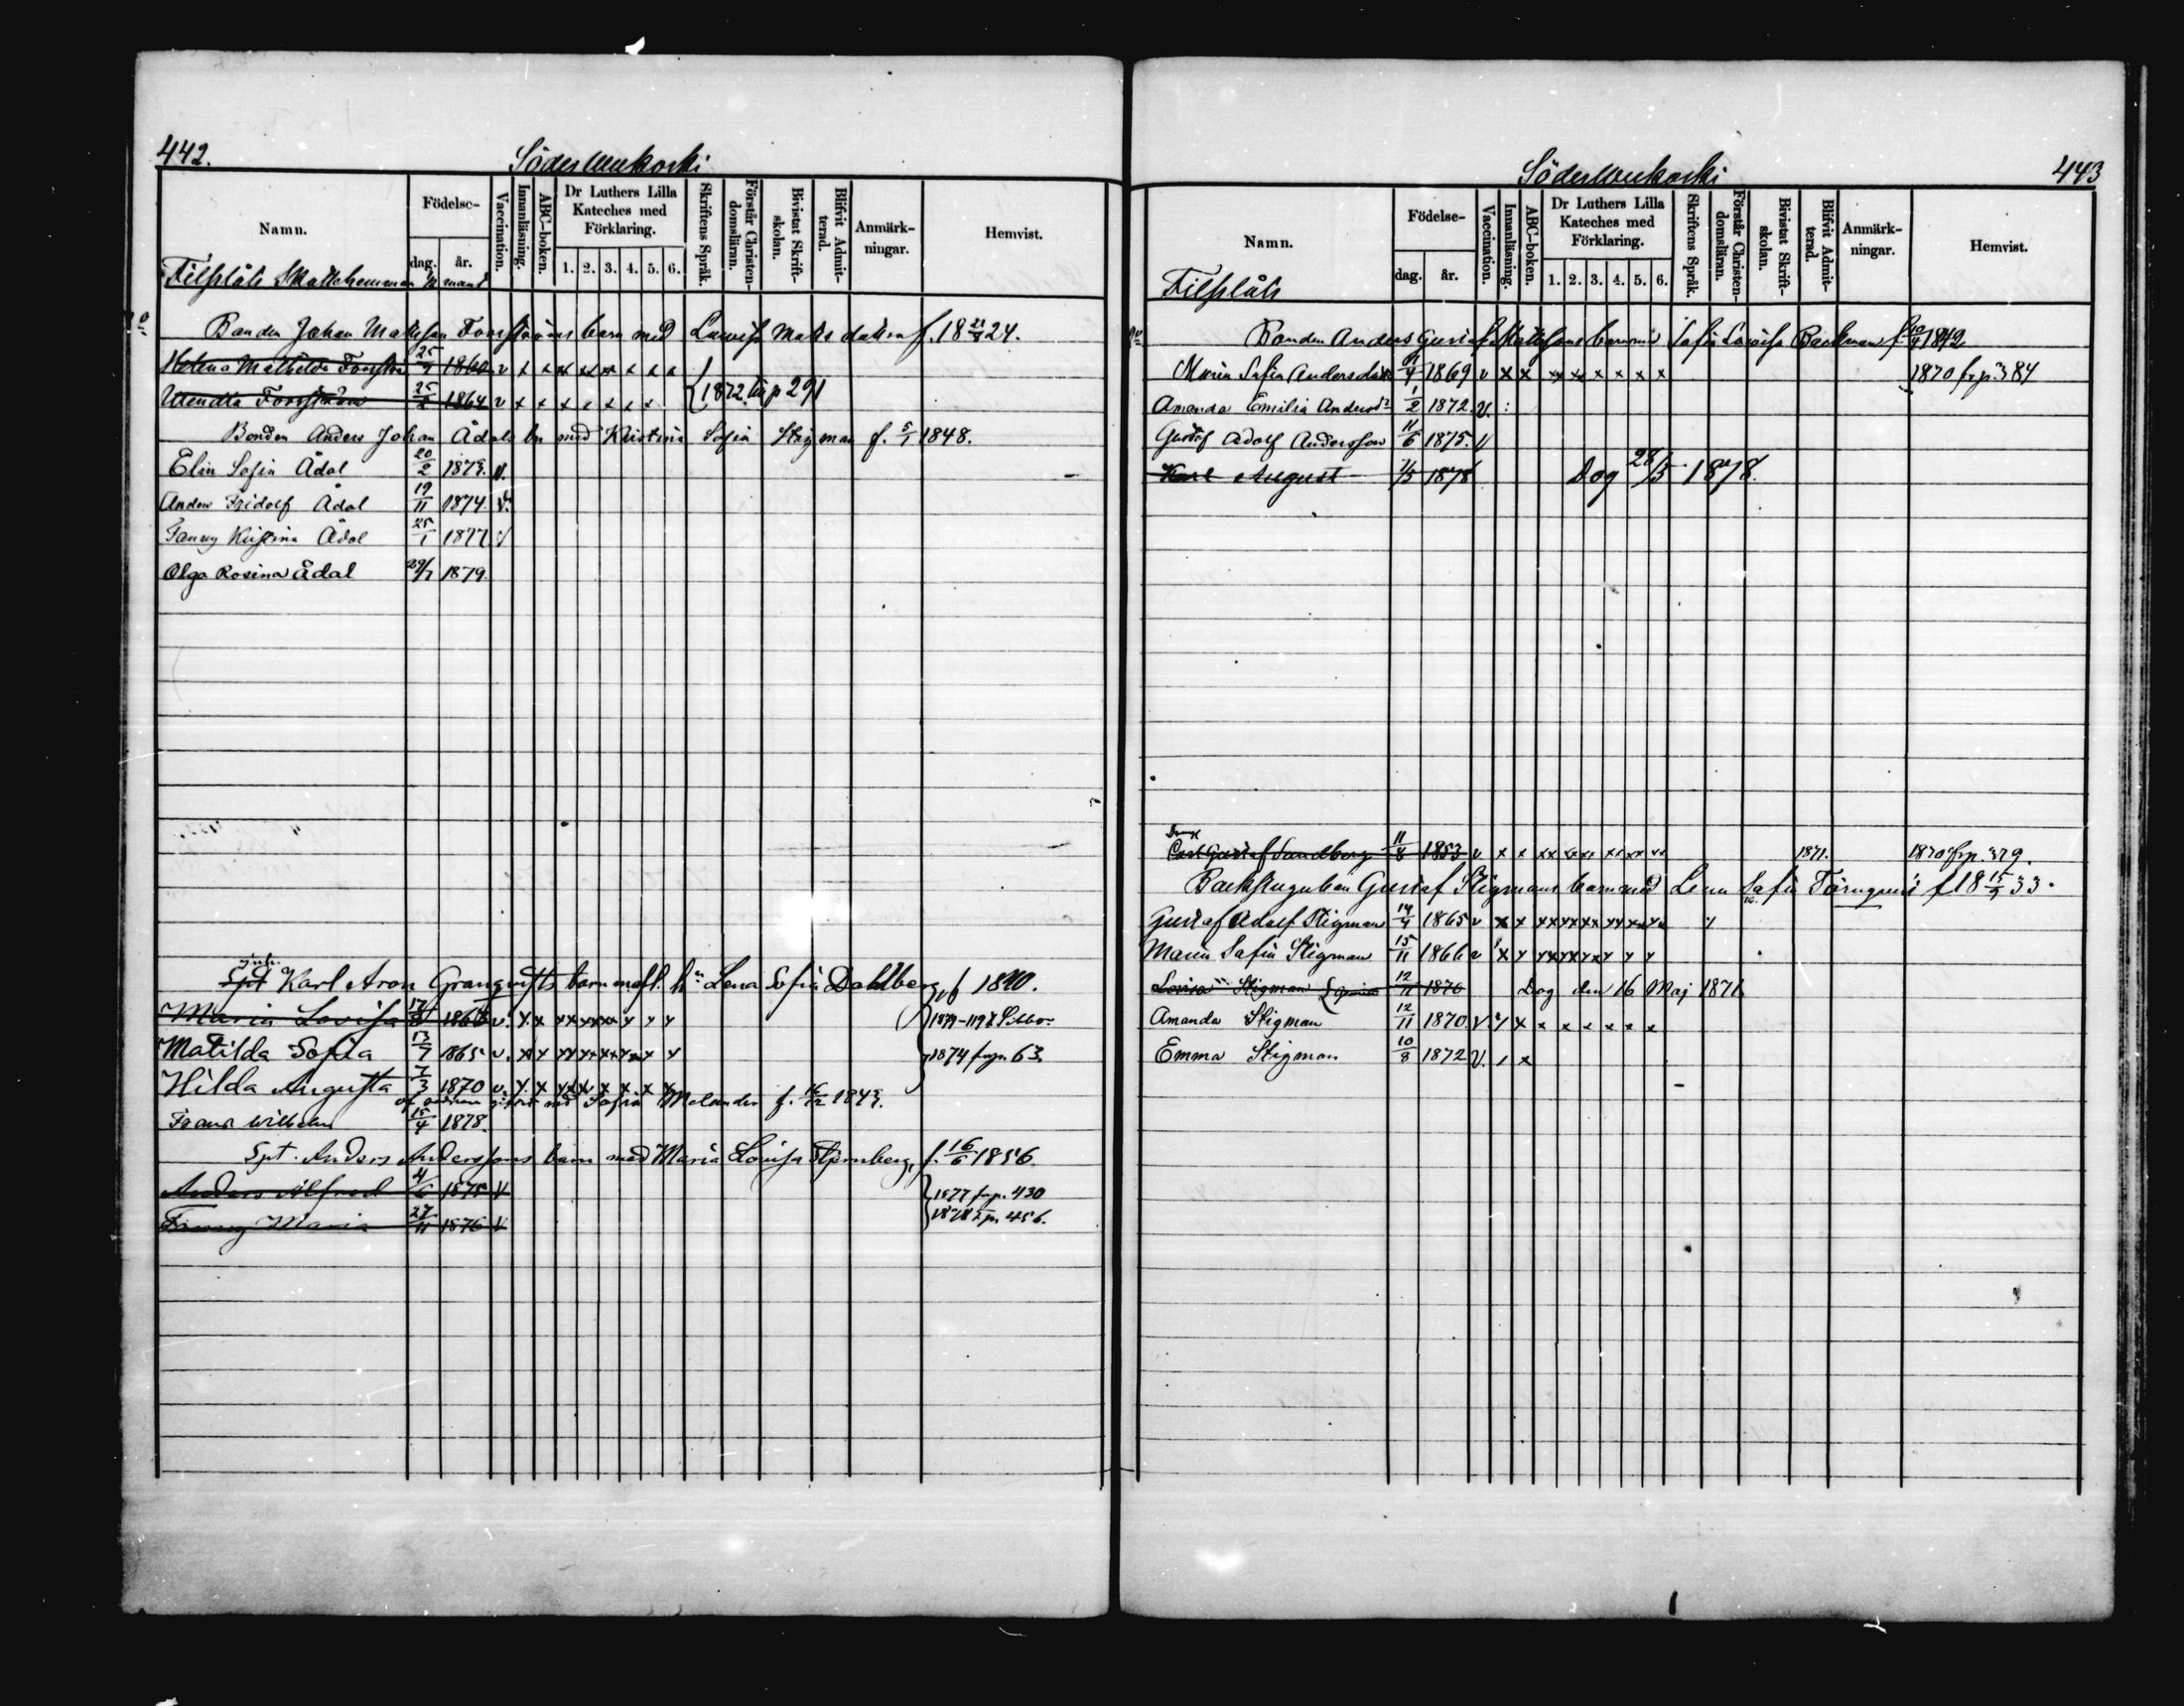 442.
Söderwekoski
Namn.
Födelse-
dag.
år.
Vaccination.
Innanläsning.
ABC-boken.
Dr Luthers Lilla Kateches med Förklaring.
1. 2. 3. 4. 5. 6.
Skriftens Språk.
Förstår Christen-domsläran.
Bivistat Skrift-skolan.
Blifvit Admit-terad.
Anmärk-ningar.
Hemvist.
Filplåts Skattehemman
Bonden Johan Mattsson Forsströms barn med Lowisa Matts dotter f. 18 24.
Helena Mathilda Forsström 1860 v x x xx xx xx x x x
Wendla Forsström 25/2 1864 v x x x x x x x { 1872 till p 291
Bonden Anders Johan Ådals bn med Kristina Sofia Stigman f. 5/1 1848.
Elin Sofia Ådal 20/2 1873. v.
Anders Fridolf Ådal 19/11 1874. v.
Fanny Kristina Ådal 25/1 1877 v
Olga Rosina Ådal 29/7 1879.
Karl Aron Granqvists barn m afl. h:n Lena Sofia Dahlberg, f 1840.
Maria Lovisa 17/8 1865 v. x x xx xx xx x x x 1879-119 t. Sibbo
Matilda Sofia 13/7 1865 v. x x xx xx xx x x 1874 fr. p. 63.
Hilda Augusta 7/3 1870 v. x x x x x x x x
af andra giftet med Sofia Melander f. 16/12 1843.
Frans Wilhelm 15/4 1878.
Spt. Anders Anderssons barn med Maria Lovisa Stjernberg, f. 16/6 1856
Anders Alfred 4/6 1875 v } 1877 fr. p. 430
Fanny Maria 27/11 1876 v } 1878 t. p. 456.
443
Söderwekoski
Namn.
Födelse-
dag.
år.
Vaccination.
Innanläsning.
ABC-boken.
Dr Luthers Lilla Kateches med Förklaring.
1. 2. 3. 4. 5. 6.
Skriftens Språk.
Förstår Christen-domsläran.
Bivistat Skrift-skolan.
Blifvit Admit-terad.
Anmärk-ningar.
Hemvist.
Filplåts
Bonden Anders Gustaf Mattssons barn med Sofia Lovisa Backman f. 1842
Maria Sofia Andersdotter 1869 v x x xx xx x x x x 1870 fr. p. 384
Amanda Emilia Andersd:r 1/2 1872. v.
Gustaf Adolf Andersson 11/6 1875. v
Karl August 7/5 1878 Dog 28/5 1878.
Carl Gustaf Sandberg 11/8 1853 v x x xx xxx xx xx xx 1871. 1870 fr. p. 379.
Backstugukarln Gustaf Stigmans barn med Lena Sofia f 18 15/5 33.
Gustaf Adolf Stigman 14/4 1865 v x x xx xx xx xx xx x
Maria Sofia Stigman 15/11 1866 v x x xx xx xx x x x
Lovisa Stigman 12/11 1870 Dog den 16 Maj 1871
Amanda Stigman 12/11 1870 v. x x x x x x x x
Emma Stigman 10/8 1872 v. x x